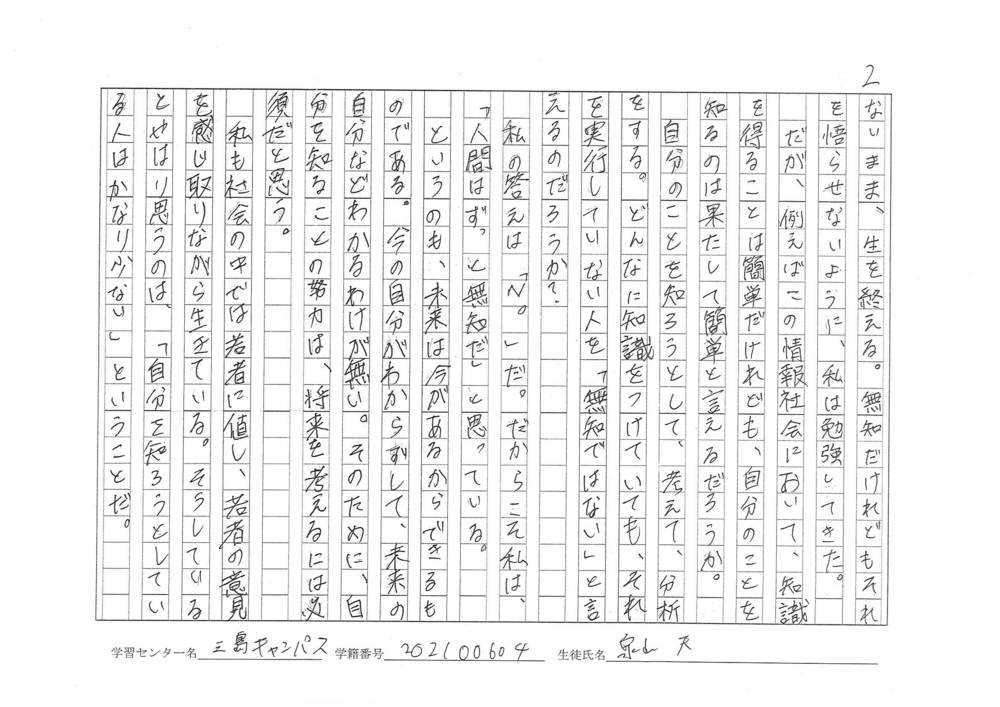 2
ないまま、生を終える。無知だけれどもそれ
を悟らせないように、私は勉強してきた。
だが、例えばこの情報社会において、知識
を得ることは簡単だけれども、自分のことを
知るのは果たして簡単と言えるだろうか。
自分のことを知ろうとして、考えて、分析
をする。どんなに知識をつけていても、それ
を実行していない人を「無知ではない」と言
えるのだろうか？
私の答えは「N。」だ。だからこそ私は、
「人間はずっと無知だ」と思っている。
というのも、未来は今があるからできるも
のである。今の自分がわからずして、未来の
自分などわかるわけが無い。そのために、自
分を知ることの努力は、将来を考えるには必
須だと思う。
私も社会の中では若者に値し、若者の意見
を感じ取りながら生きている。そうしている
とやはり思うのは、「自分を知ろうとしてい
る人はかなり少ない」ということだ。
学習センター名 三島キャンパス 学籍番号 202100604 生徒氏名